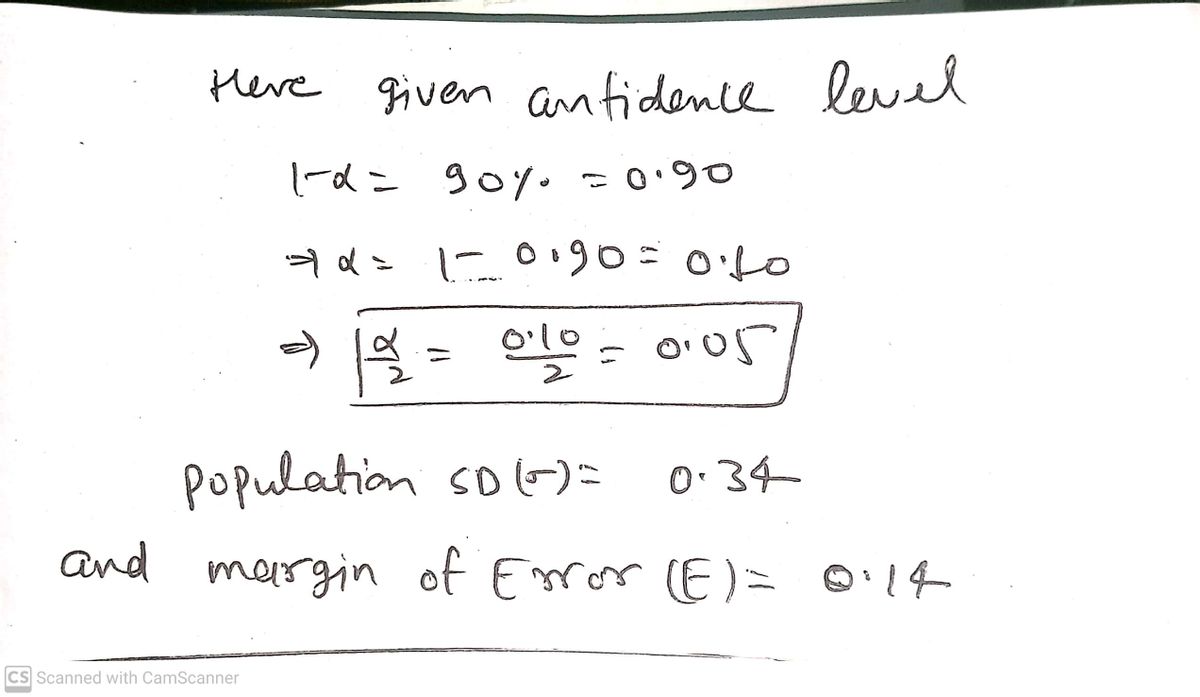 Here given confidence level
1-α = 90% = 0.90
⇒ α = 1 - 0.90 = 0.10
⇒ α/2 = 0.10/2 = 0.05
population SD (σ) = 0.34
and margin of Error (E) = 0.14
CS Scanned with CamScanner